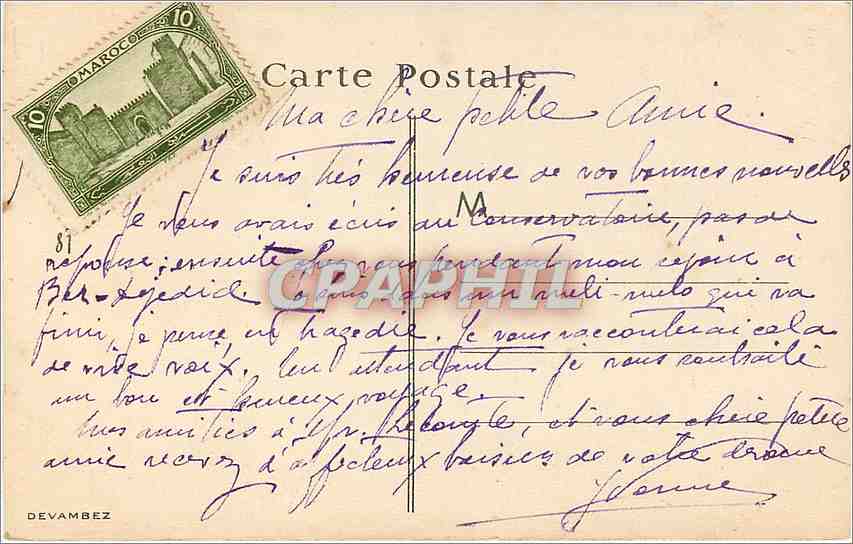 10 MAROC 10
10
Carte Postale
Ma chère petite Amie.
Je suis très heureuse de vos bonnes nouvelles
Je vous avais écris au Conservatoire, pas de
M
81
réponse; ensuite chez vous pendant mon séjour à
CPAPHIL
dans un méli-mélo qui va
finir, je pense, en tragédie. Je vous raconterai cela
de vive voix. En attendant je vous souhaite
un bon et heureux voyage.
Mes amitiés à Mr. Lecomte, et vous chère petite
amie recevez d'affectueux baisers de votre
Yvonne
DEVAMBEZ